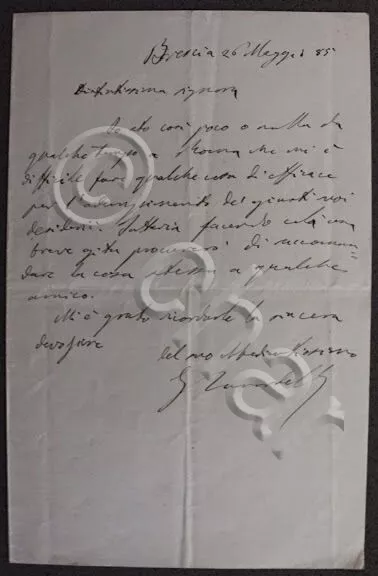 Brescia 26 Maggio 85
Distintissima signora
Io sto così poco o nulla da
qualche tempo a Roma che mi è
difficile fare qualche cosa di efficace
per l'adempimento dei giusti suoi
desiderii. Tuttavia facendo colà una
breve gita procurerò di raccoman=
dare la cosa stessa a qualche
amico.
Mi è grato ricordarle la sincera
devozione
del suo
G Zanardelli